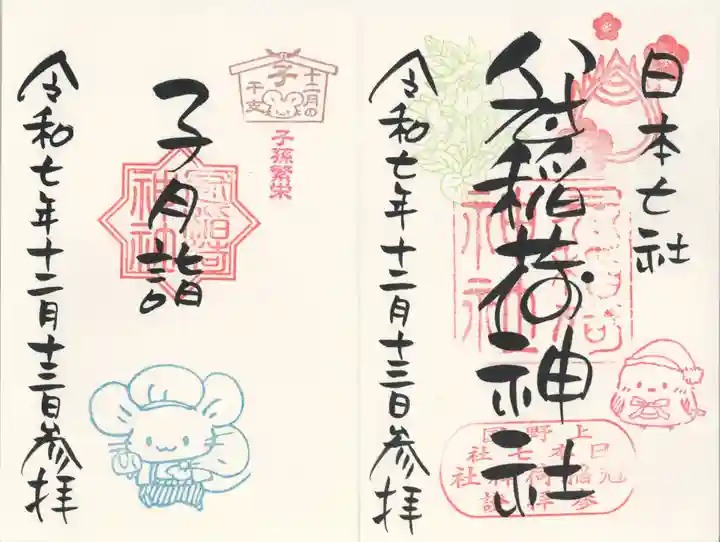 日本七社
冠稲荷神社
令和七年十二月十三日参拝
上野国
日本七社
冠稲荷神社
十二月の
子
干支
子孫繁栄
子月詣
令和七年十二月十三日参拝